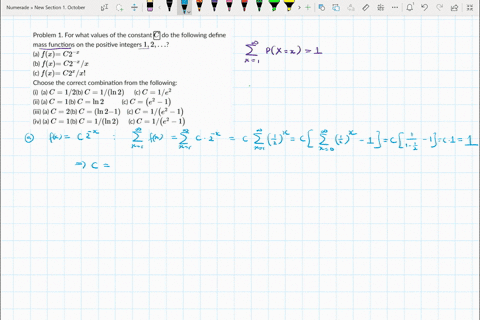 Numerade » New Section 1. October
Problem 1. For what values of the constant C do the following define
mass functions on the positive integers 1, 2, . . .?
(a) f(x) = C2^{-x}
(b) f(x) = C2^{-x}/x
(c) f(x) = C2^x/x!
Choose the correct combination from the following:
(i) (a) C = 1/2(b) C = 1/(ln 2) (c) C = 1/e^2
(ii) (a) C = 1(b) C = ln 2 (c) C = (e^2 − 1)
(iii) (a) C = 2(b) C = (ln 2−1) (c) C = 1/(e^2 − 1)
(iv) (a) C = 1(b) C = 1/(ln 2) (c) C = 1/(e^2 − 1)
\sum_{x=1}^{∞} P(X=x) = 1
(a) f(x) = C2^{-x} : \sum_{x=1}^{∞} f(x) = \sum_{x=1}^{∞} C·2^{-x} = C \sum_{x=1}^{∞} (1/2)^x = C[\sum_{x=0}^{∞} (1/2)^x − 1] = C[1/(1−1/2) − 1] = C·1 = 1
⇒ C =